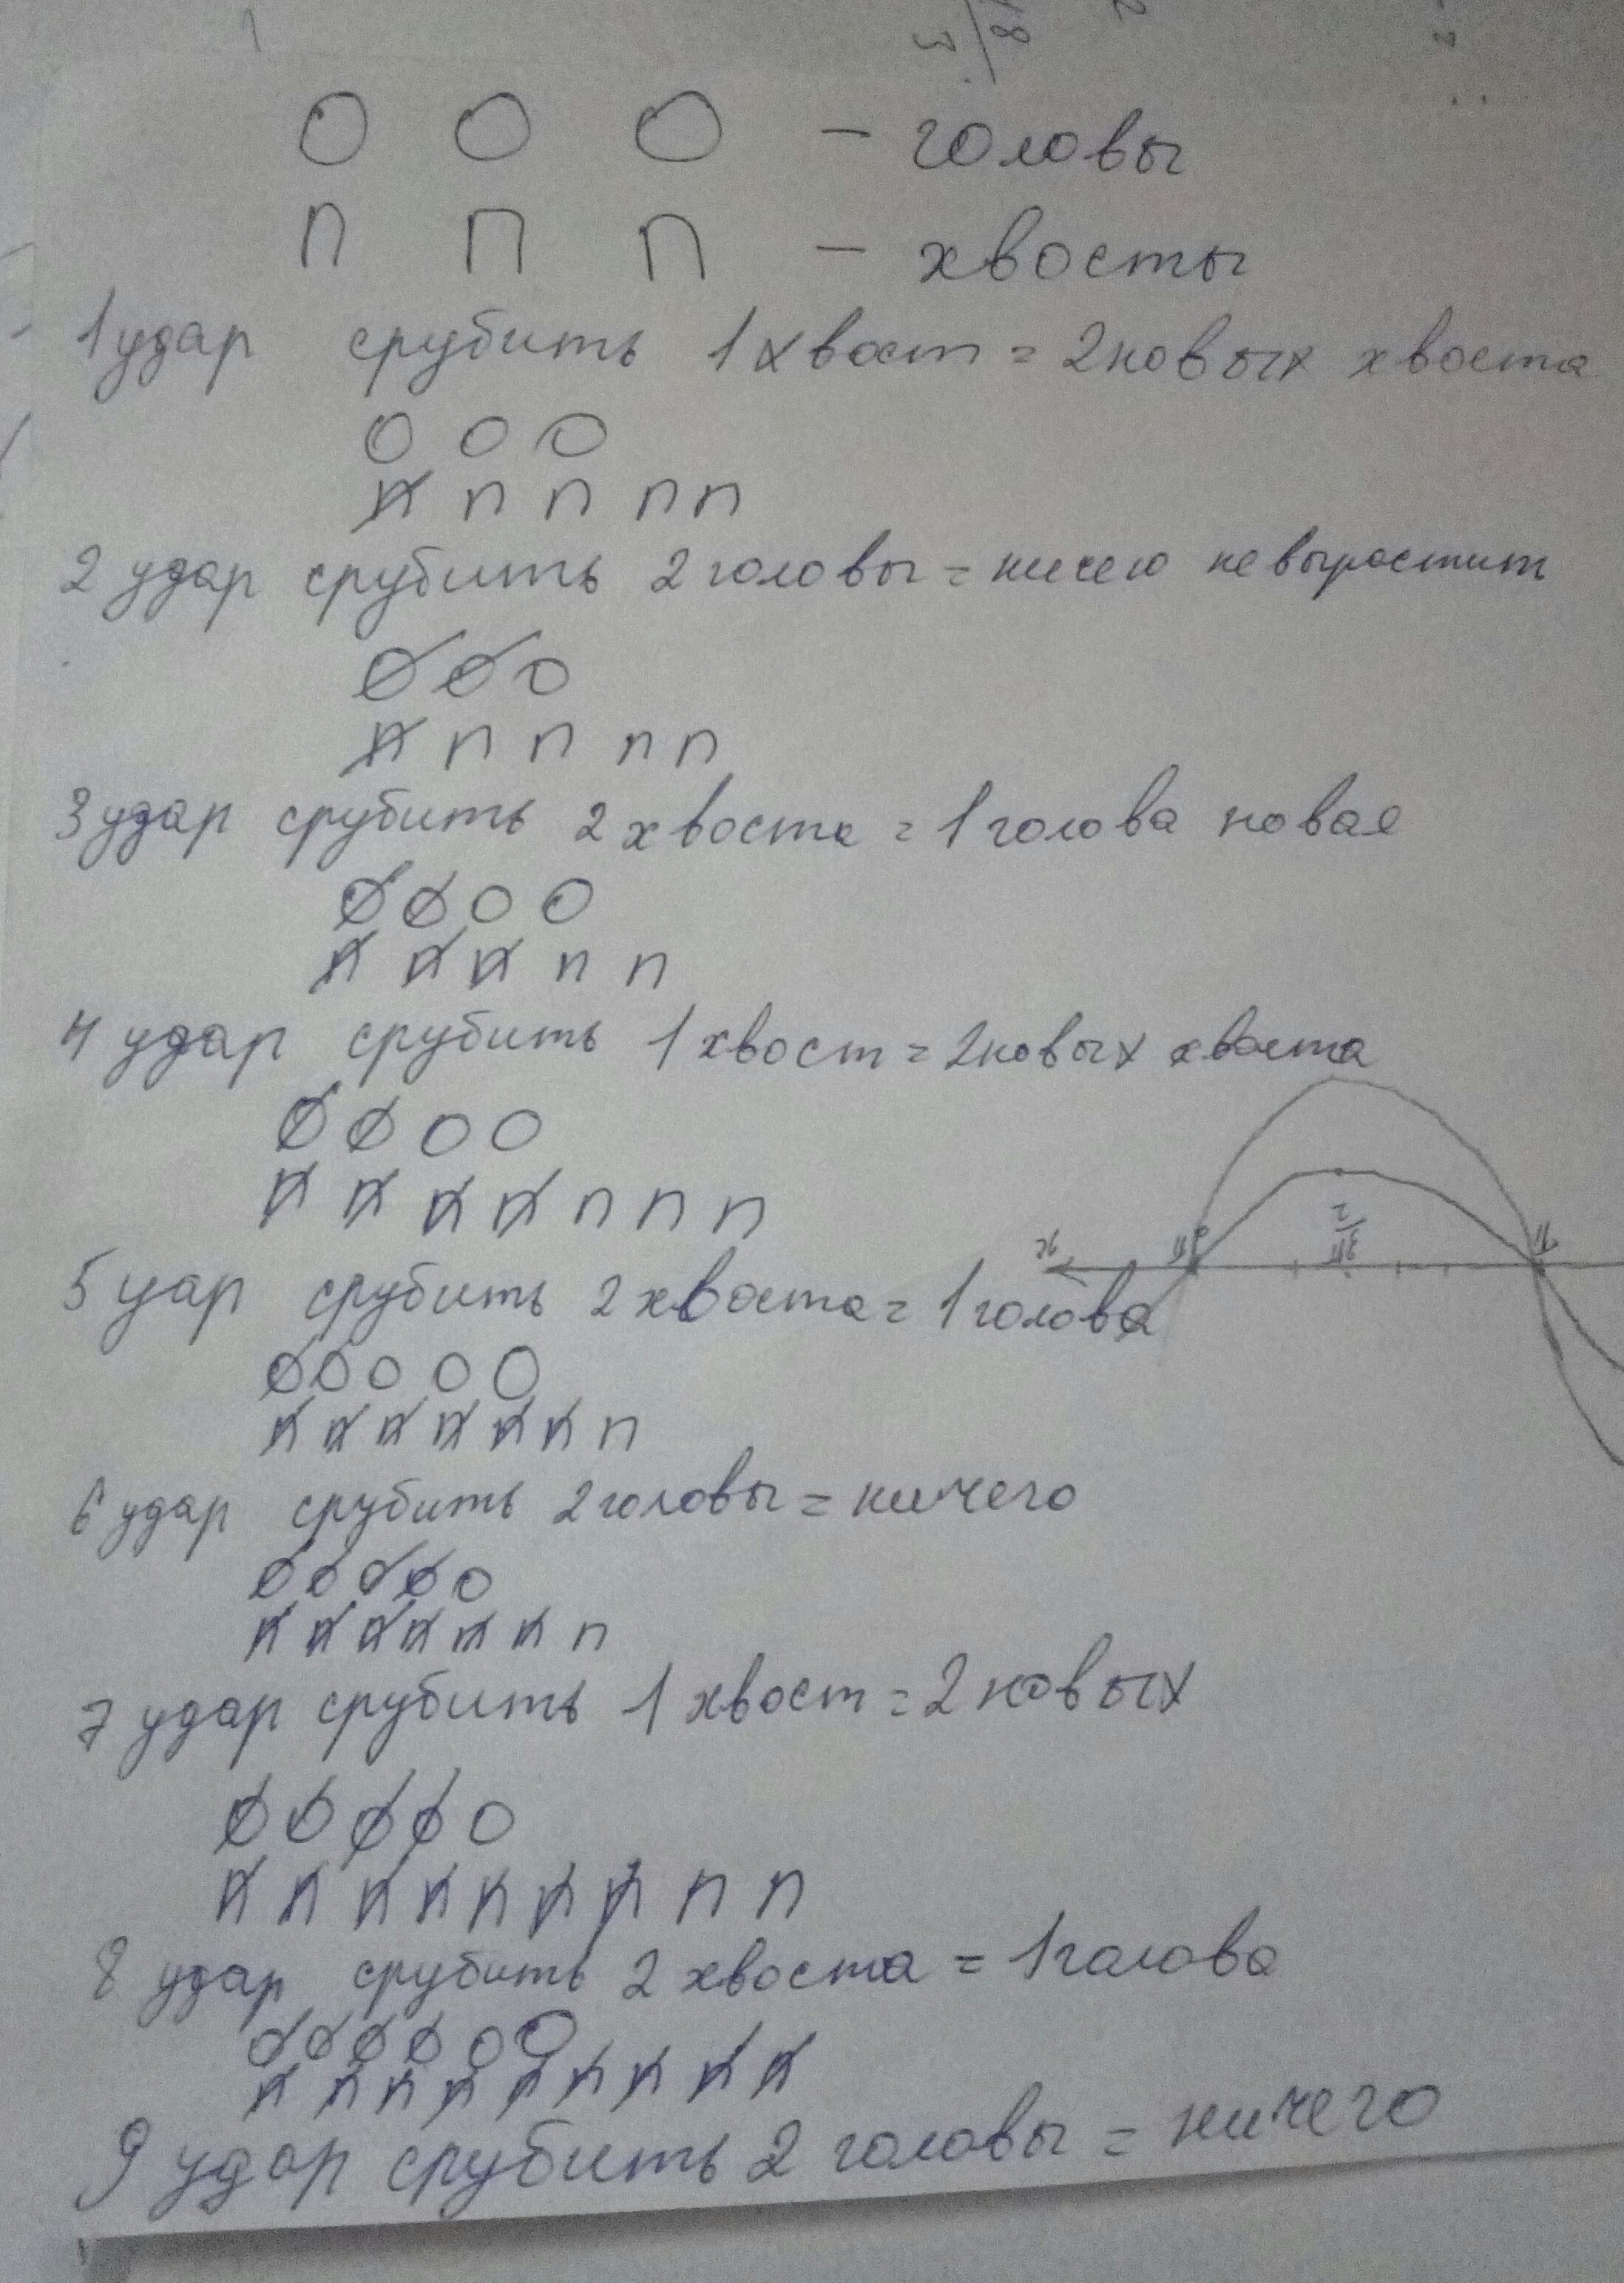 О О О – головы
П П П – хвосты
1 удар срубить 1 хвост = 2 новых хвоста
О О О
П П П П П
2 удар срубить 2 головы = ничего не вырастит
О О О
П П П П П
3 удар срубить 2 хвоста = 1 голова новая
О О О О
П П П П П
4 удар срубить 1 хвост = 2 новых хвоста
О О О О
П П П П П П П
5 уар срубить 2 хвоста = 1 голова
О О О О О
П П П П П П П
6 удар срубить 2 головы = ничего
О О О О О
П П П П П П П
7 удар срубить 1 хвост = 2 новых
О О О О О
П П П П П П П П П
8 удар срубить 2 хвоста = 1 голова
О О О О О О
П П П П П П П П П
9 удар срубить 2 головы = ничего